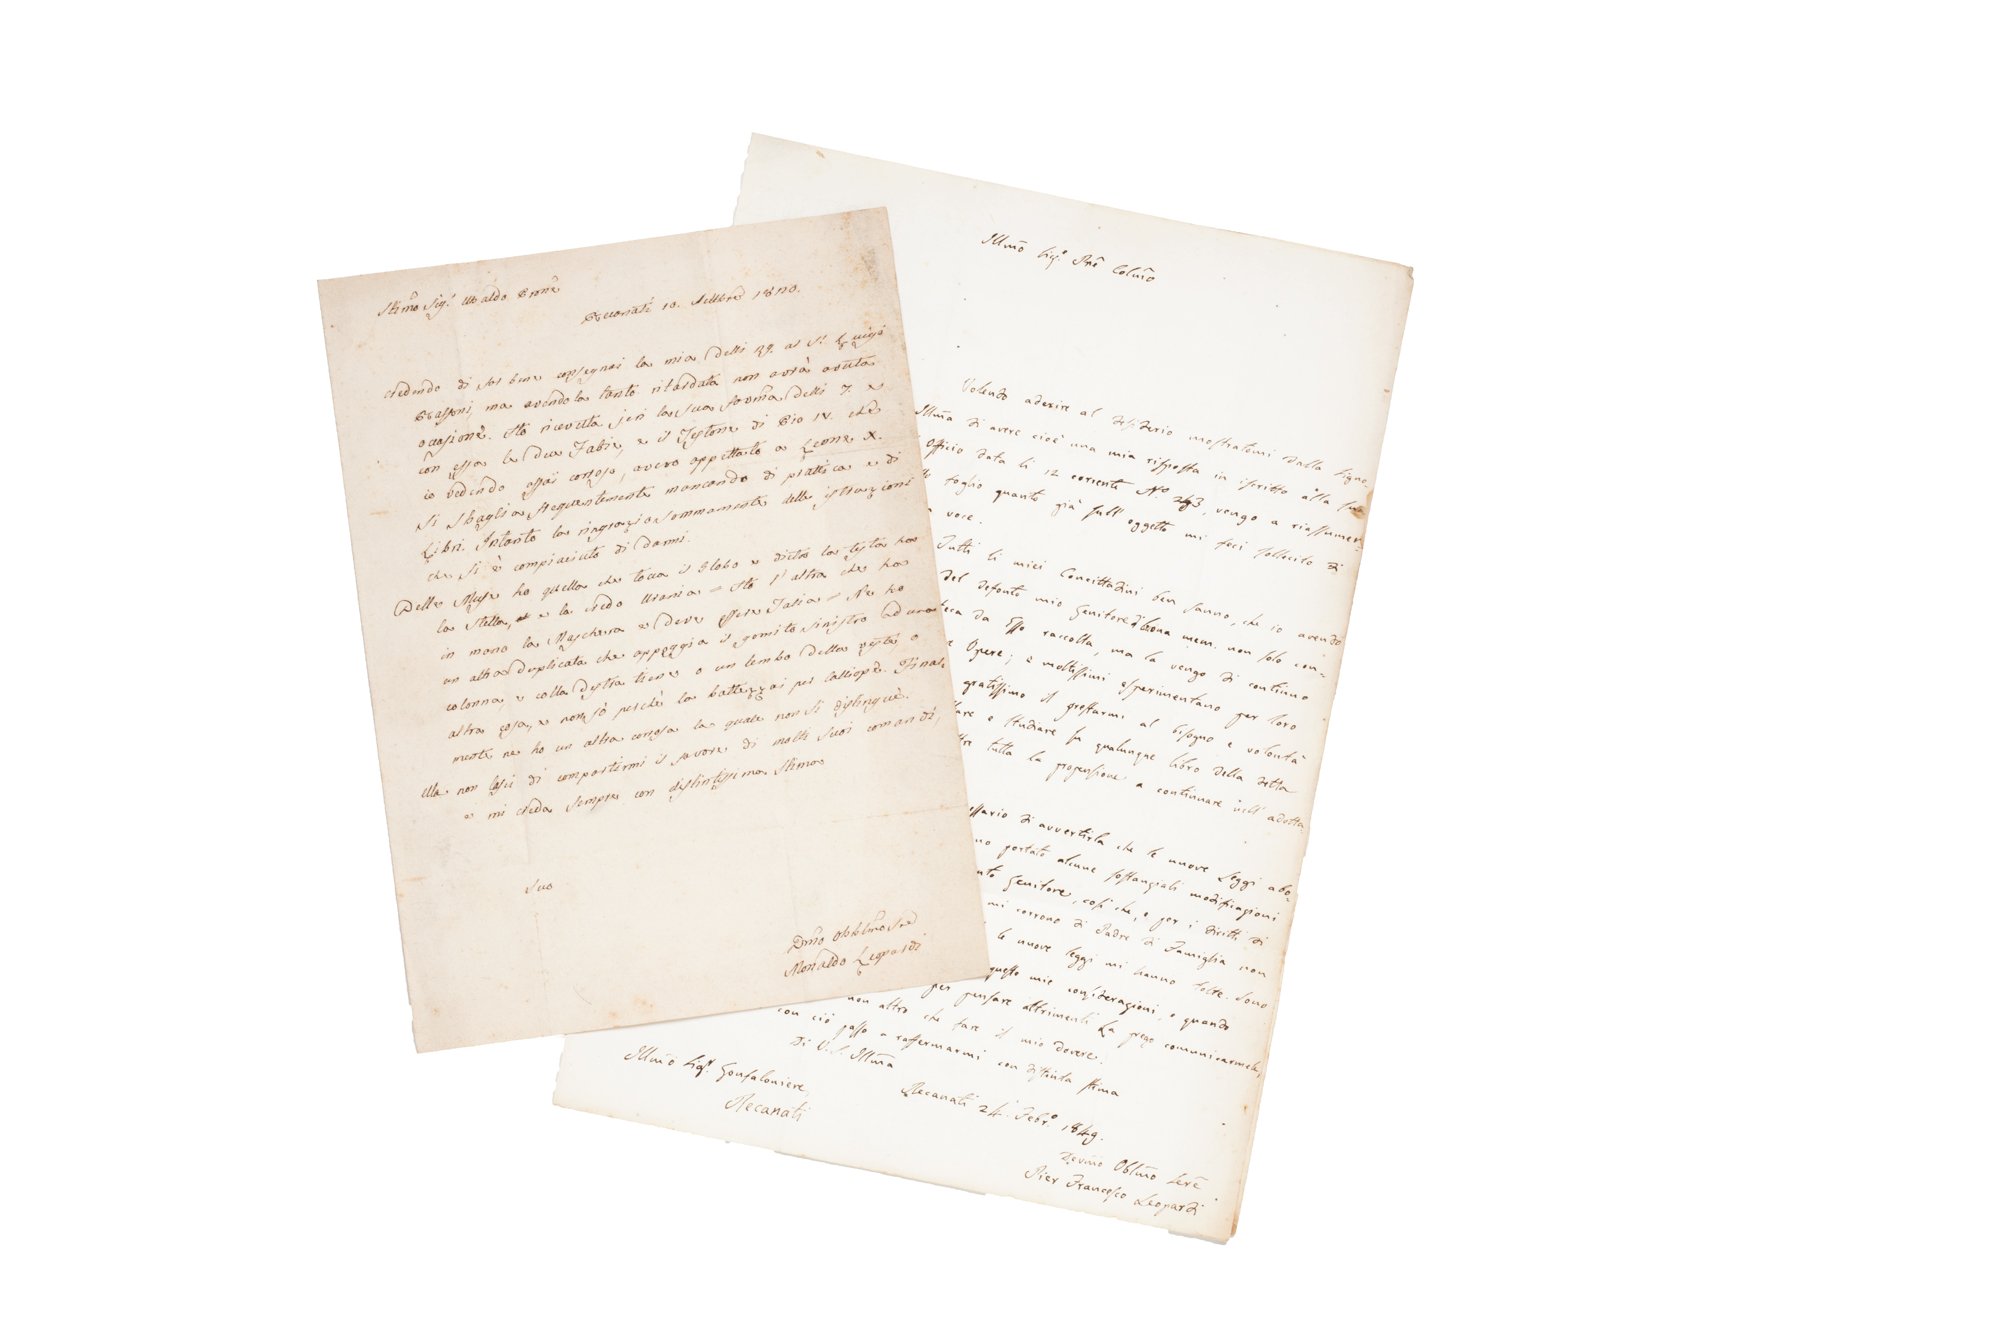 Stimo Sig.r Ubaldo
Recanati 10. Settbre 1810.
credendo di far bene consegnai la mia delli 29. al S.r Luigi
ma avendola tanto ritardata non avrà avuta
ocasione. Ho ricevuta jeri la sua favma delli 7. e
con essa le due Fabie, e il Testone di Pio IV. che
io vedendo assai corroso, avevo appettato a Leone X.
Si sbaglia frequentemente mancando di prattica e di
Libri. Intanto la ringrazio sommamente delle istruzioni
che si è compiaciuto di darmi.
Delle Muse ho quella che tocca il Globo e dietro la testa ha
la stella, e la credo Urania = Ho l'altra che ha
in mano la Maschera e deve essere Talia = Ne ho
un altra duplicata che appoggia il gomito sinistro ad una
colonna, e colla destra tiene o un lembo della veste o
altra cosa, e non sò perchè la battezzai per Calliope. Final-
mente ne ho un altra corrosa la quale non si distingue.
Ella non lasci di compartirmi il favore di molti suoi comandi,
e mi creda sempre con distintissima stima
Suo
Dmo Obblmo Sre
Monaldo Leopardi
Illmo Sig.r Pne Colmo
Volendo aderire al desiderio mostratomi dalla Signo-
Illma di avere cioè una mia risposta in iscritto alla sua
Officio data li 12 corrente N.o 293, vengo a riassumer-
foglio quanto già sull'oggetto mi feci sollecito di
voce.
Tutti li miei Concittadini ben sanno, che io avendo
del defonto mio Genitore di buona mem. non solo con-
teca da Esso raccolta, ma la vengo di continuo
Opere; e moltissimi esperimentano per loro
gratissimo il prestarmi al bisogno e volontà
e studiare su qualunque libro della detta
tutta la propensione a continuare nell'adotta
essario di avvertirla che le nuove Leggi abo-
no portato alcune sostanziali modificazioni
Genitore, così che, e per i diritti di
mi corrono di Padre di Famiglia non
le nuove leggi mi hanno tolte. Sono
queste mie considerazioni, e quando
per pensare altrimenti La prego comunicarmele,
non altro che fare il mio dovere.
con ciò passo a raffermarmi con distinta stima
Di V.S. Illma
Illmo Sig.r Gonfaloniere
Recanati
Recanati 24 Febr.o 1849.
Devmo Oblmo Serv
Pier Francesco Leopardi